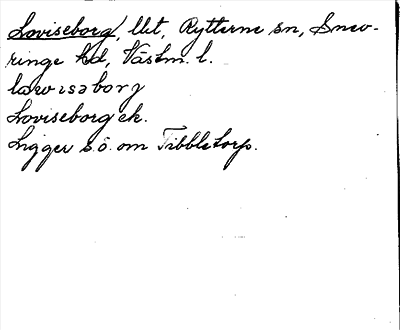 Loviseborg, llt, Rytterne sn, Snev-
ringe hd, Västm. l.
lawɩsəborj
Loviseborg ek.
Ligger s.ö. om Tibbletorp.